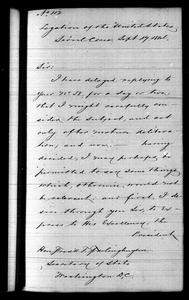 No. 112
Legation of the United States,
Sept 19, 1881.
Sir:
I have delayed replying to
your No. 58, for a day or two,
that I might carefully con-
sider the subject, and act
only after mature delibera-
tion, and now — having
decided, I may perhaps, be
permitted to say some things
which, otherwise, would not
be relevant. And first, I de-
sire through you Sir, to ex-
press to His Excellency, the
President
Hon. Fredk T. Frelinghuysen
Secretary of State
Washington D.C.